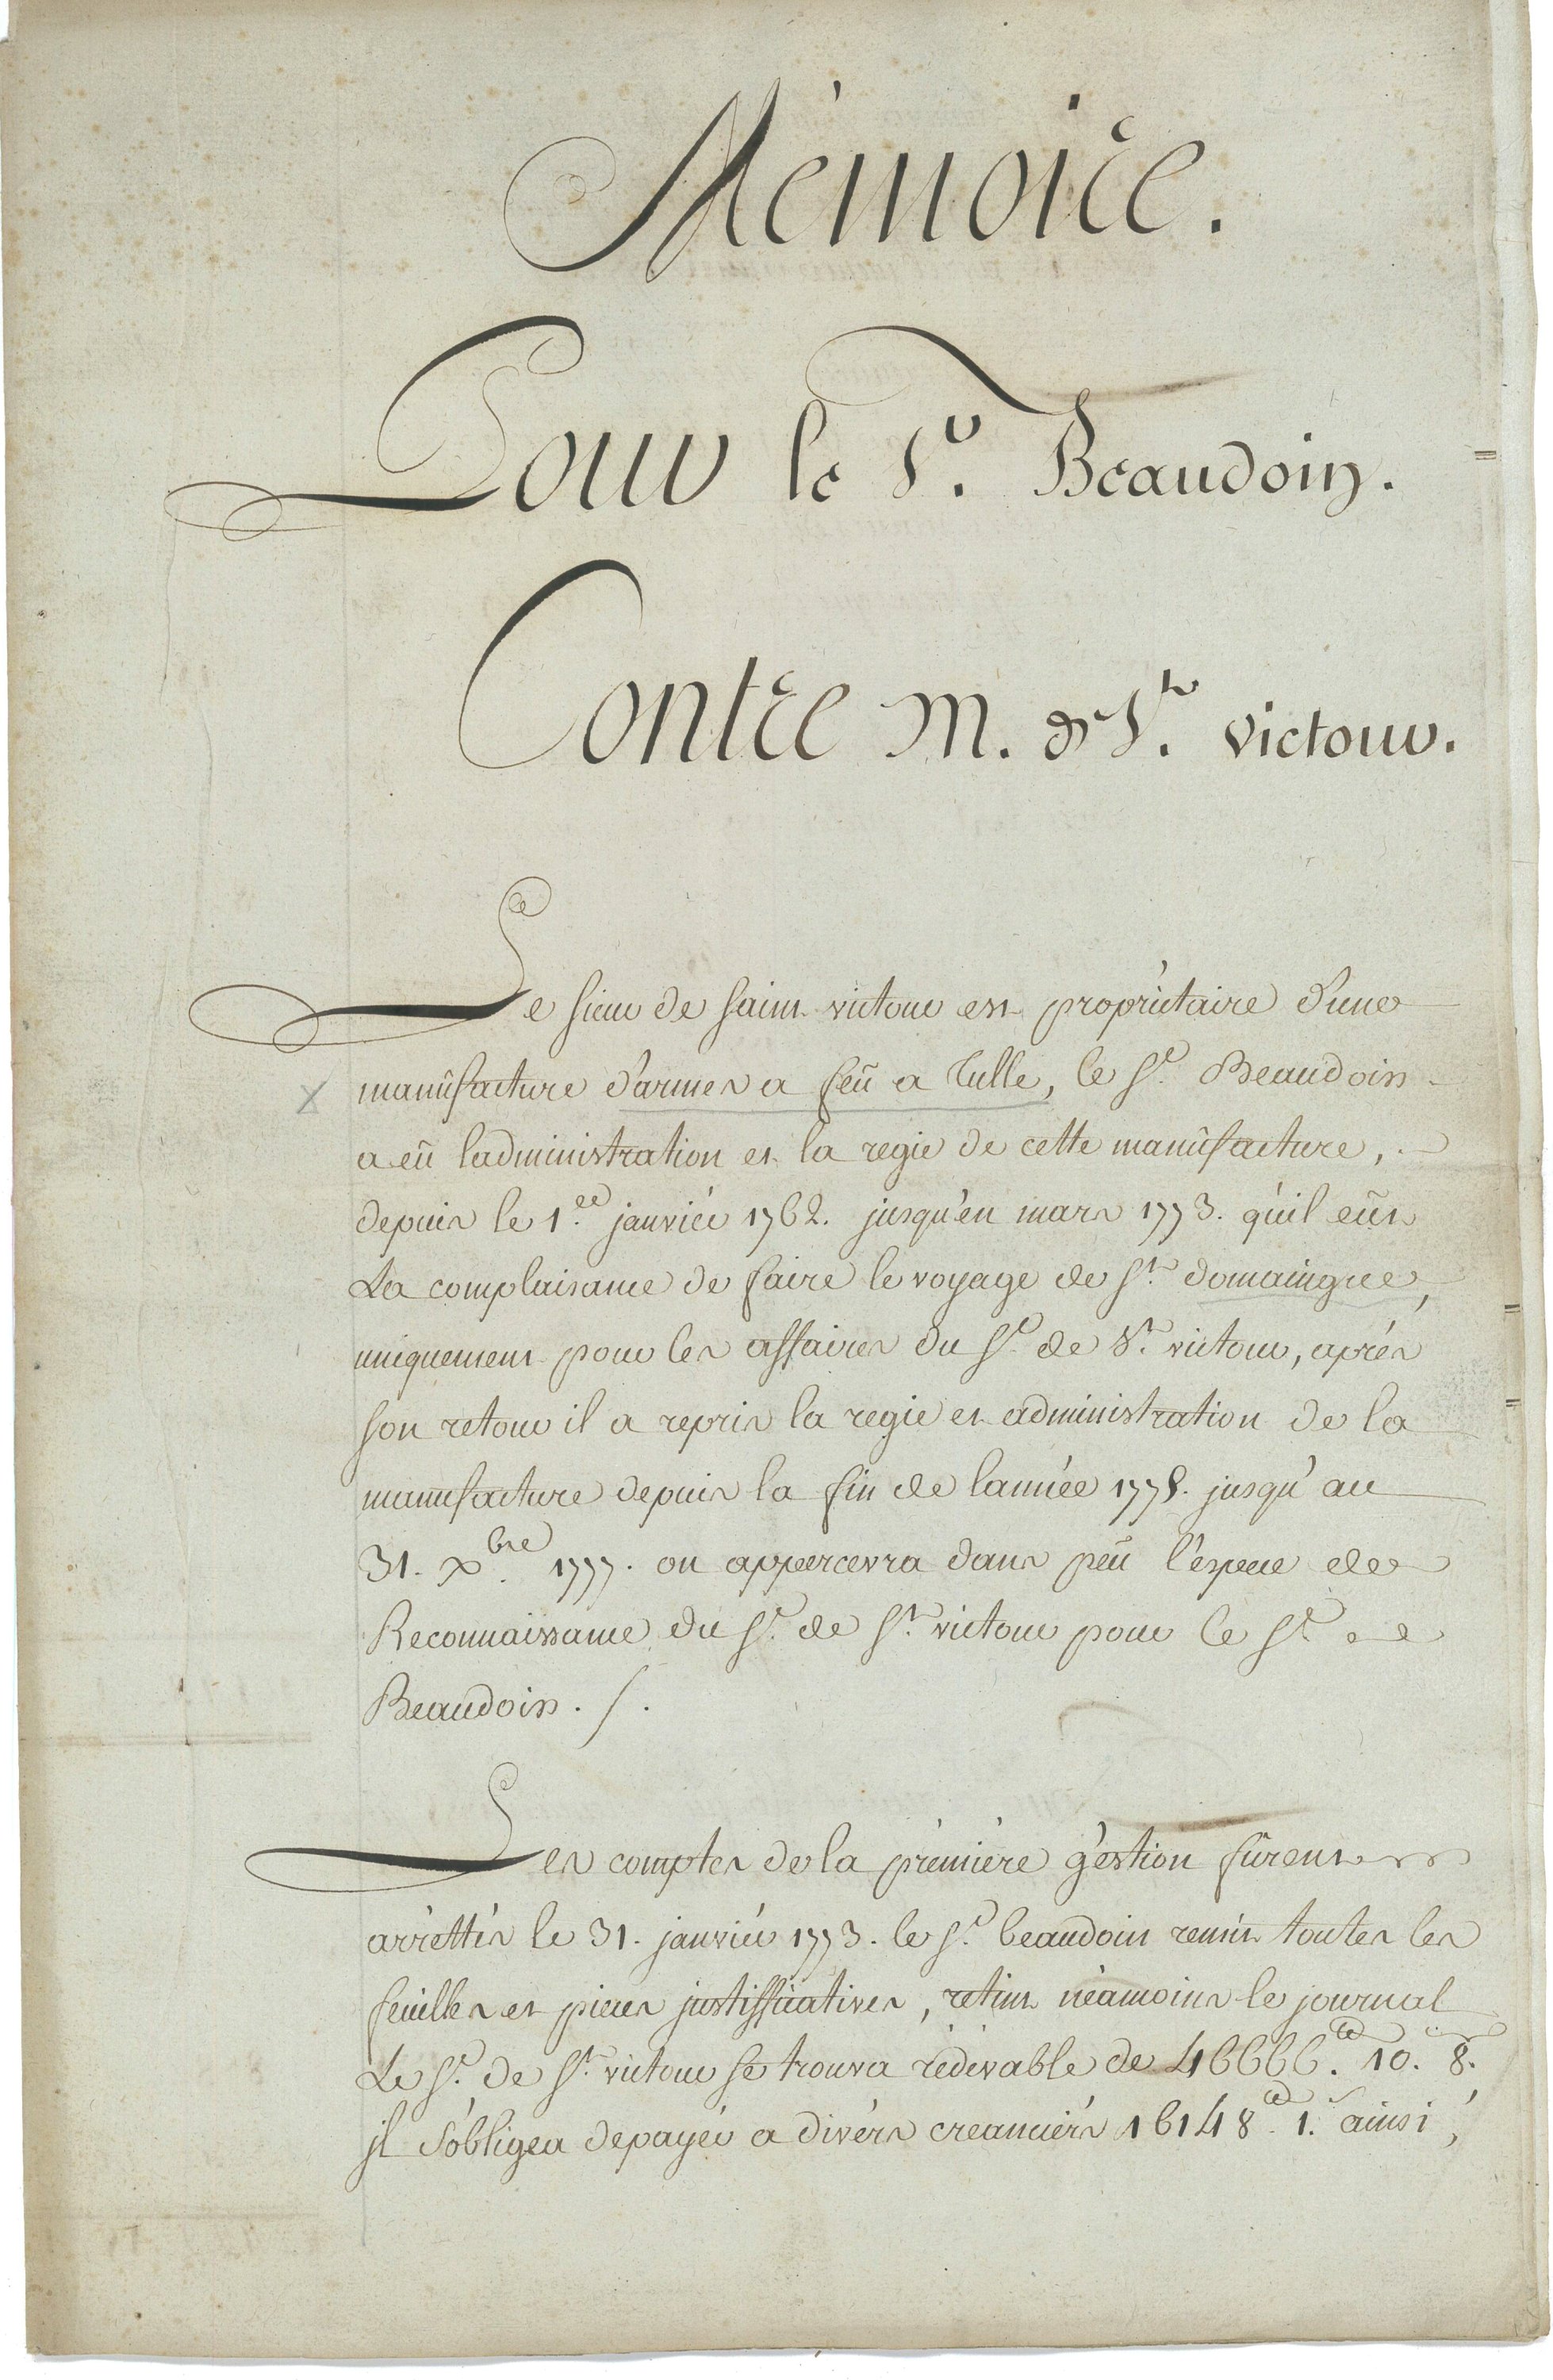 Mémoire.
Pour le Sr. Beaudoin.
Contre M. de St. victour.
Le sieur de saint victour est propriètaire d'une
manûfacture d'armes a feû a Tulle, le Sr. Beaudoin
a eû ladministration et la regie de cette manûfacture,
depuis le 1.er janvier 1762. jusqu'en mars 1773. qu'il eût
La complaisance de faire le voyage de St. domaingue,
uniquement pour les affaires du Sr. de St. victour, aprés
son retour il a repris la regie et administration de la
manufacture depuis la fin de lannèe 1775. jusqu'au
31. Xbre. 1777. on appercevra dans peû l'espece de
Reconnaissance du Sr. de St. victour pour le Sr.
Beaudoin. /.
Les comptes de la prémiére géstion fûrent
arrèttés le 31. janvier 1773. le Sr. beaudoin remit toutes les
feuilles et pieces justifficatives, retint nèamoins le journal
Le Sr. de St. victour se trouva rédevable de 46666.lt 10. 8.
jl s'obligea depayér a divérs creanciérs 16148.lt 1. ainsi,